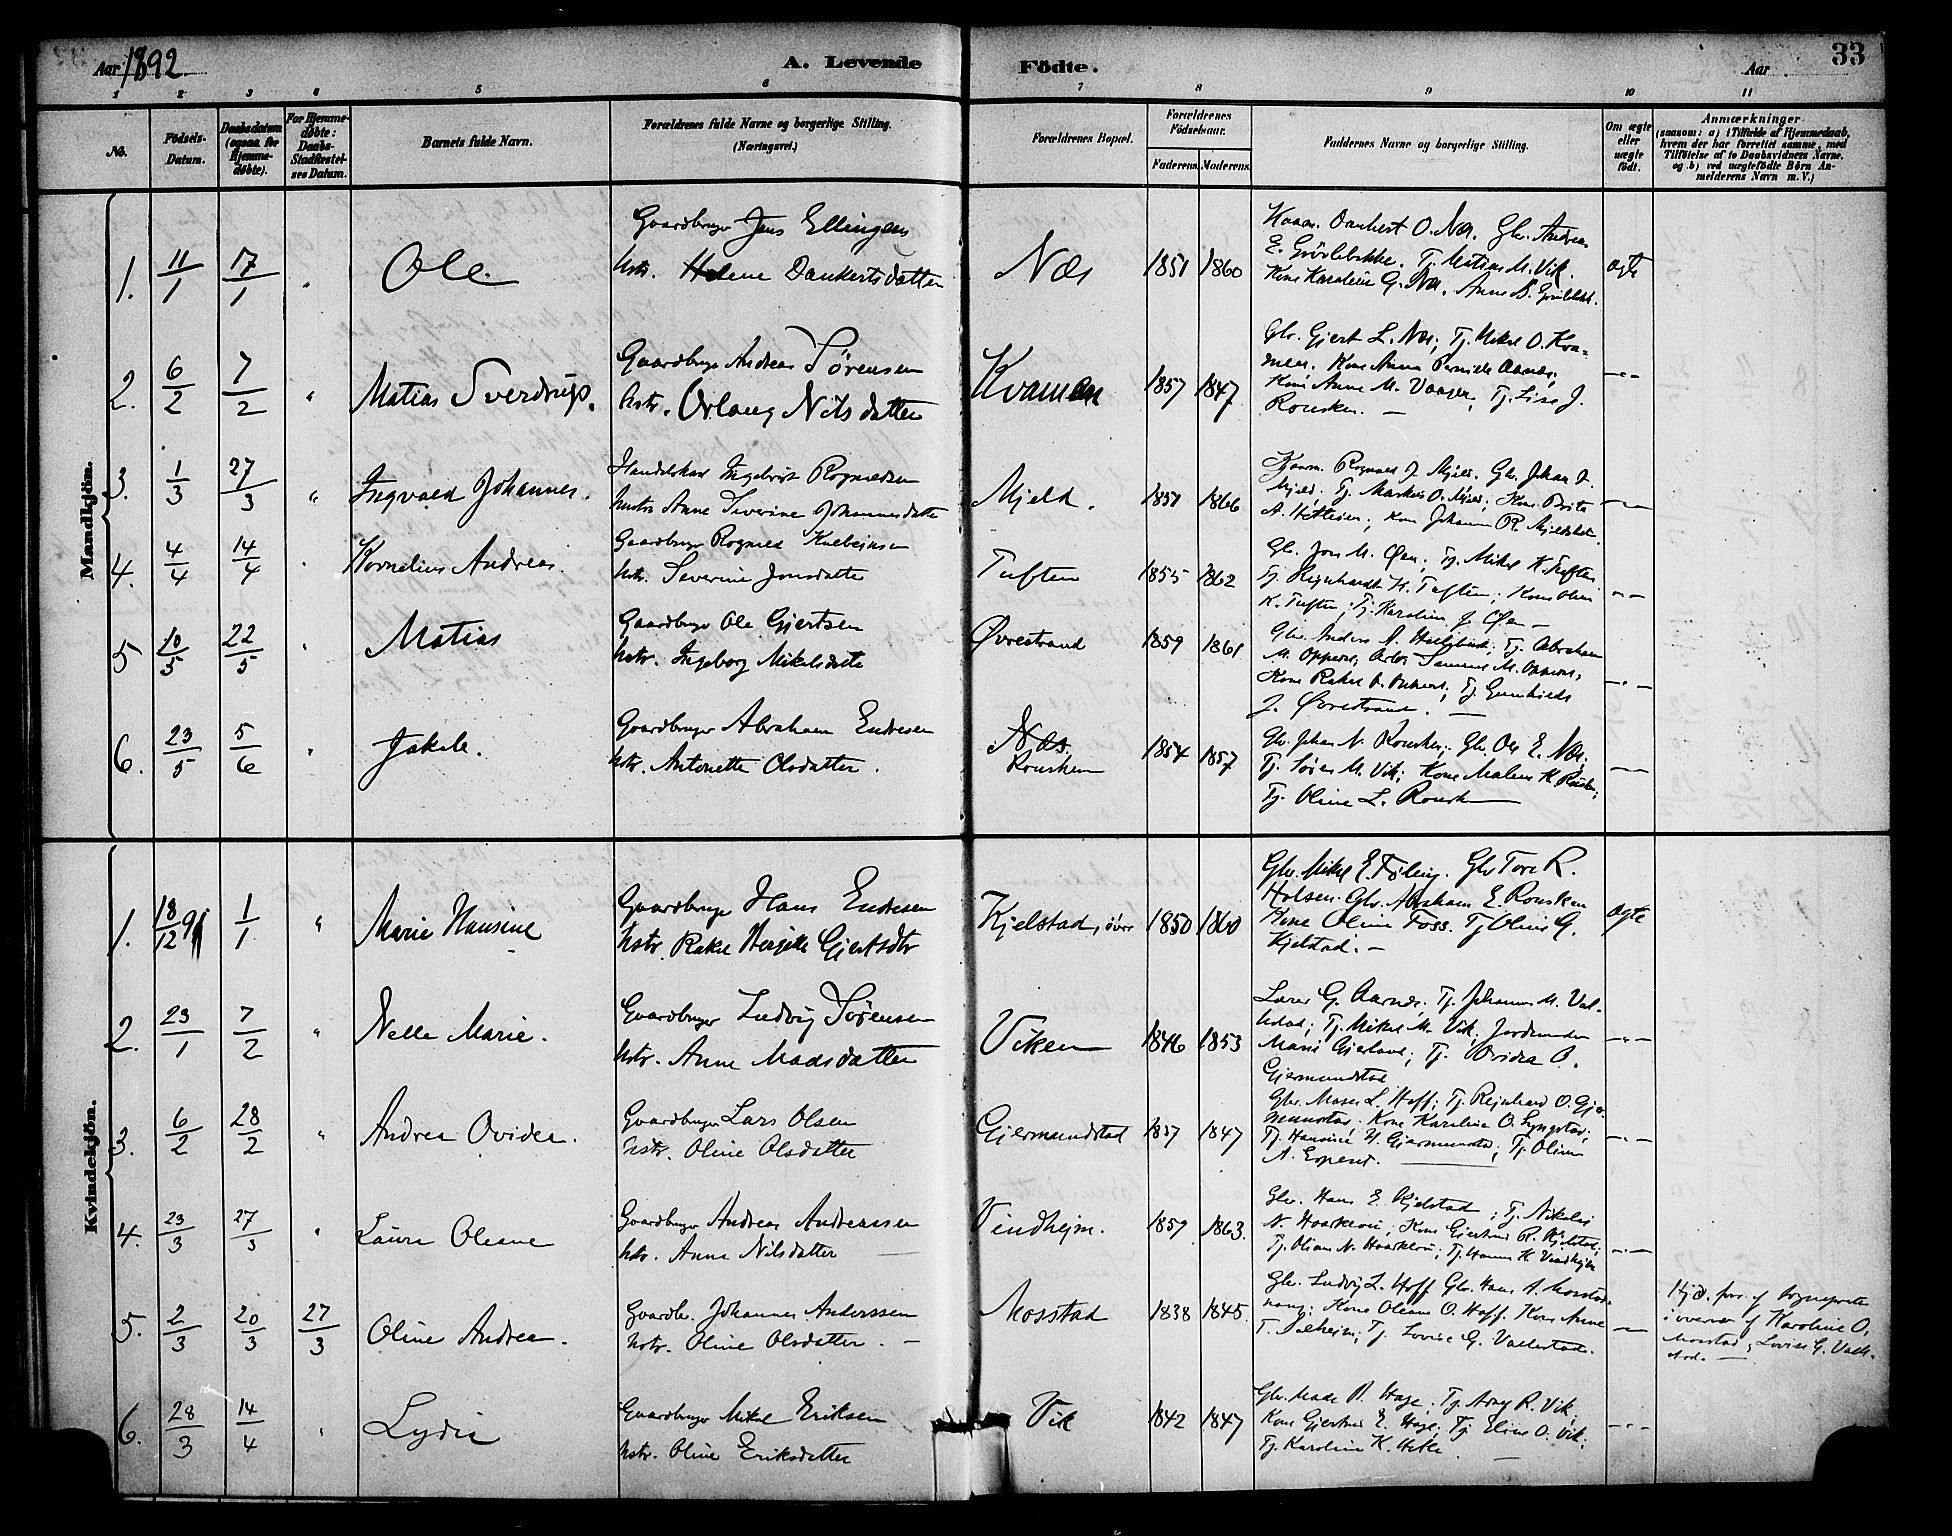 Aar 1892
A. Levende Födte.
Aar
33
1 2 3 4 5 6 7 8 9 10 11
No.
Födsels-Datum.
Daabsdatum (ogsaa for Hjemmedøbte).
For Hjemmedøbte: Daabs-Stadfæstelses Datum.
Barnets fulde Navn.
Forældrenes fulde Navne og borgerlige Stilling. (Næringsvei.)
Forældrenes Bopæl.
Forældrenes Födselsaar.
Faderens. Moderens.
Faddernes Navne og borgerlige Stilling.
Om ægte eller uægte født.
Anmærkninger
(saasom: a) i Tilfælde af Hjemmedaab,
hvem der har forrettet samme, med
Tilføielse af to Daabsvidners Navne,
og b) ved uægtefødte Börn An-
melderens Navn m. V.)
Mandkjön.
1. 11/1 17/1 " Ole Gaardbruger Jens Ellingsen
Hstr. Helene Dankertsdatter
Næs 1851 1860
Dankert O. Næs. Gbr. Andreas
E. Tj. Matias M. Vik.
Kone Karoline G. Næs. Anne
ægte
2. 6/2 7/2 " Matias Sverdrup. Gaardbruger Andreas Sörensen
Hstr. Nilsdatter
Kvamen 1857 1847
Gbr. Gjert L. Næs; Tj. Mikel O. Kva-
men. Kone Anna
Kone Anne M. Tj. Lise J.
Rousken. —
—"—
3. 1/3 27/3 " Ingvald Johannes. Ingebrigt Rognaldsen
Hustru Anne Severine Johannesdatter
Mjeld. 1851 1866
Rognald J. Mjeld. Gbr. Johan J.
Mjeld. Tj. Markus O. Mjeld; Kone Brita
A. Kone Johanne R.
—"—
4. 4/4 14/4 " Kornelius Andreas. Gaardbruger Rognald Kolbeinsen
Hstr. Severine Jonsdatter
Tuften 1855 1862
Gbr. Jon M. Øen; Tj. Mikel K. Tuften
Tj. Reinhardt K. Tuften; Kone Oline
K. Tuften; Tj. Karoline J. Øen —
—"—
5 10/5 22/5 " Matias Gaardbruger Ole Gjertsen
Hstr. Ingeborg Mikelsdatter
Øvrestrand 1859 1861
Gbr. Anders Tj. Abraham
M. Samuel M.
Kone Rakel Tj. Gunhild
J. Øvrestrand. —
—"—
6. 23/5 5/6 " Jakob. Gaardbruger Abraham Endresen
Hstr. Antonette Olsdatter.
Næs.
Rousken
1854 1857
Gbr. Johan N. Rousken; Gbr. Ole E. Næs;
Tj. Sören M. Vik; Kone Malene K.
Tj. Oline L. Rousken
—"—
Kvindekjön.
1. 18/12 91 1/1 " Marie Hansine Gaardbruger Hans Endresen
Hstr. Rakel Gjertsdtr
Kjelstad, øvre 1850 1860
Gbr. Mikel E. Gbr Tore R.
Holsen. Gbr. Abraham E. Rousken
Kone Oline Foss. Tj Oline G.
Kjelstad. —
ægte
2. 23/1 7/2 " Nelle Marie. Gaardbruger Ludvig Sörensen
Hstr. Anne Madsdatter
Viken 1846 1853
G. Aarnes; Tj. Johannes M. Val-
lestad; Tj. Mikel M. Vik; Jordmoder
Marie Tj. O.
Gjermundstad
—"—
3. 6/2 28/2 " Andrea Ovidea. Gaardbruger Lars Olsen
Hstr. Oline Olsdatter
Gjermundstad 1857 1847
Gbr. L. Hoff; Tj. Reinhard O. Gjer-
mundstad; Kone Karoline O.
Tj. Hansine H. Gjermundstad; Tj. Oline
A. Espeset.
—"—
4. 23/3 27/3 " Laura Oleane Gaardbruger Andreas Andreassen
Hstr. Anne Nilsdatter
Vindheim. 1859 1863.
Gbr. Hans E. Kjelstad; Tj. Nikolai
N. Kone Gjertine R. Kjelstad;
Tj. Oliane N. Tj. Hanna K. Vindheim
—"—
5. 2/3 20/3 27/3 Oline Andrea. Gaardbr. Johannes Anderssen
Hstr. Oline Olsdatter. —
Mosstad 1838 1845.
Gbr. Ludvig L. Hoff Gbr. Hans A. Mosstad-
haug; Kone Oleane O. Hoff. Kone Anne
T. Solheim; Tj. Lovise G. Vallestad.
—"—
Hjd. forr. af Sogneprest
i overvær af Karoline O.
Mosstad, Lovise G. Valle-
stad. —
6. 28/3 14/4 " Lydia Gaardbruger Mikel Eriksen
Hstr. Oline Eriksdatter
Vik 1842 1847
Gbr. Mads Hage. Tj. R. Vik
Kone Gjertine E. Hage; Tj. Eline O. Vik;
Tj. Karoline K.
—"—